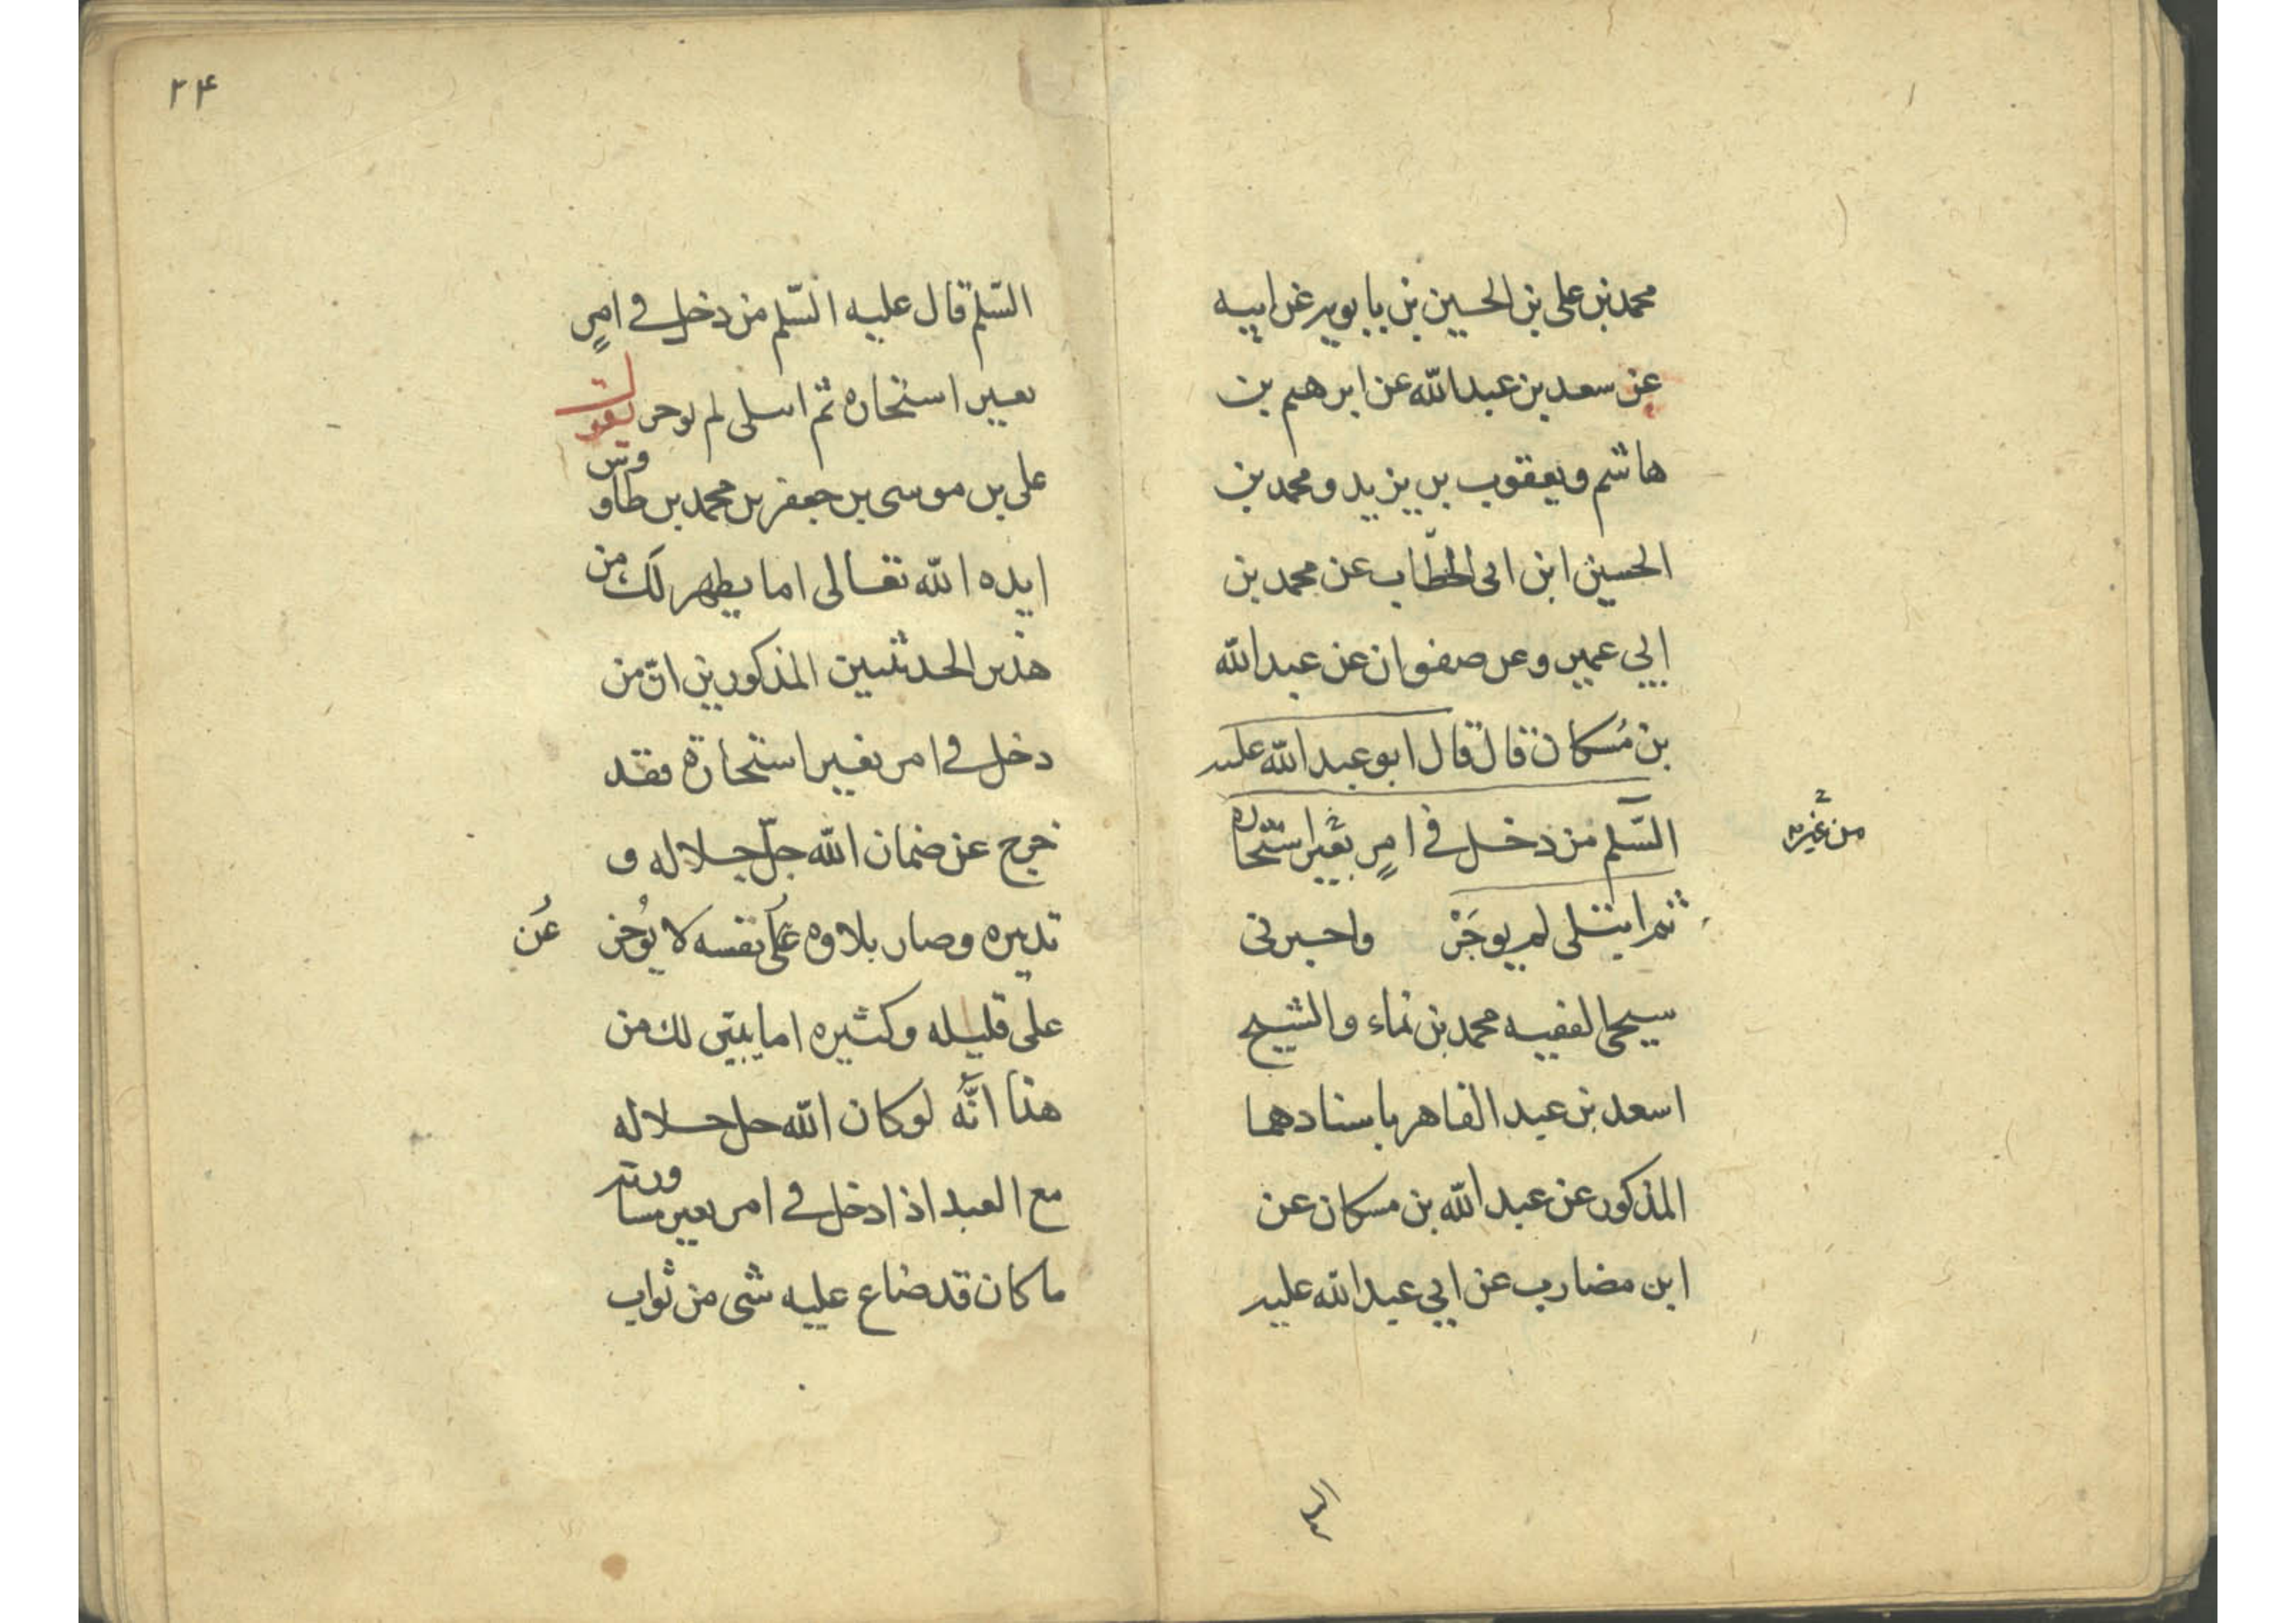 محمد بن على بن الحسين بن بابويه عن ابيه
عن سعد بن عبد الله عن ابرهيم بن
هاشم ويعقوب بن يزيد ومحمد بن
الحسين ابن ابى الخطاب عن محمد بن
ابي عمير وعن صفوان عن عبد الله
بن مُسكان قال قال ابو عبد الله عليه
السّلم من دخل فى امرٍ بغير استخاره
من غير
ثم ابتلى لم يوجَرْ واخبرنى
شيخى الفقيه محمد بن نماء والشيخ
اسعد بن عبد القاهر باسنادهما
المذكور عن عبد الله بن مسكان عن
ابن مضارب عن ابي عبد الله عليه
٢٤
السّلم قال عليه السّلم من دخل فى امرٍ
بغير استخاره ثم ابتلى لم يوجر يقول
على بن موسى بن جعفر بن محمد بن طاووس
ايده الله تعالى اما يظهر لك من
هذين الحديثين المذكورين انّ من
دخل فى امر بغير استخارة فقد
خرج عن ضمان الله جلّ جلاله و
تدبيره وصار بلاوه على نفسه لا يُوجر عن
على قليله وكثيره اما يبيّن لك من
هذا انَّه لو كان الله جل جلاله
مع العبد اذا دخل فى امر بغير مشاورته
ما كان قد ضاع عليه شى من ثواب